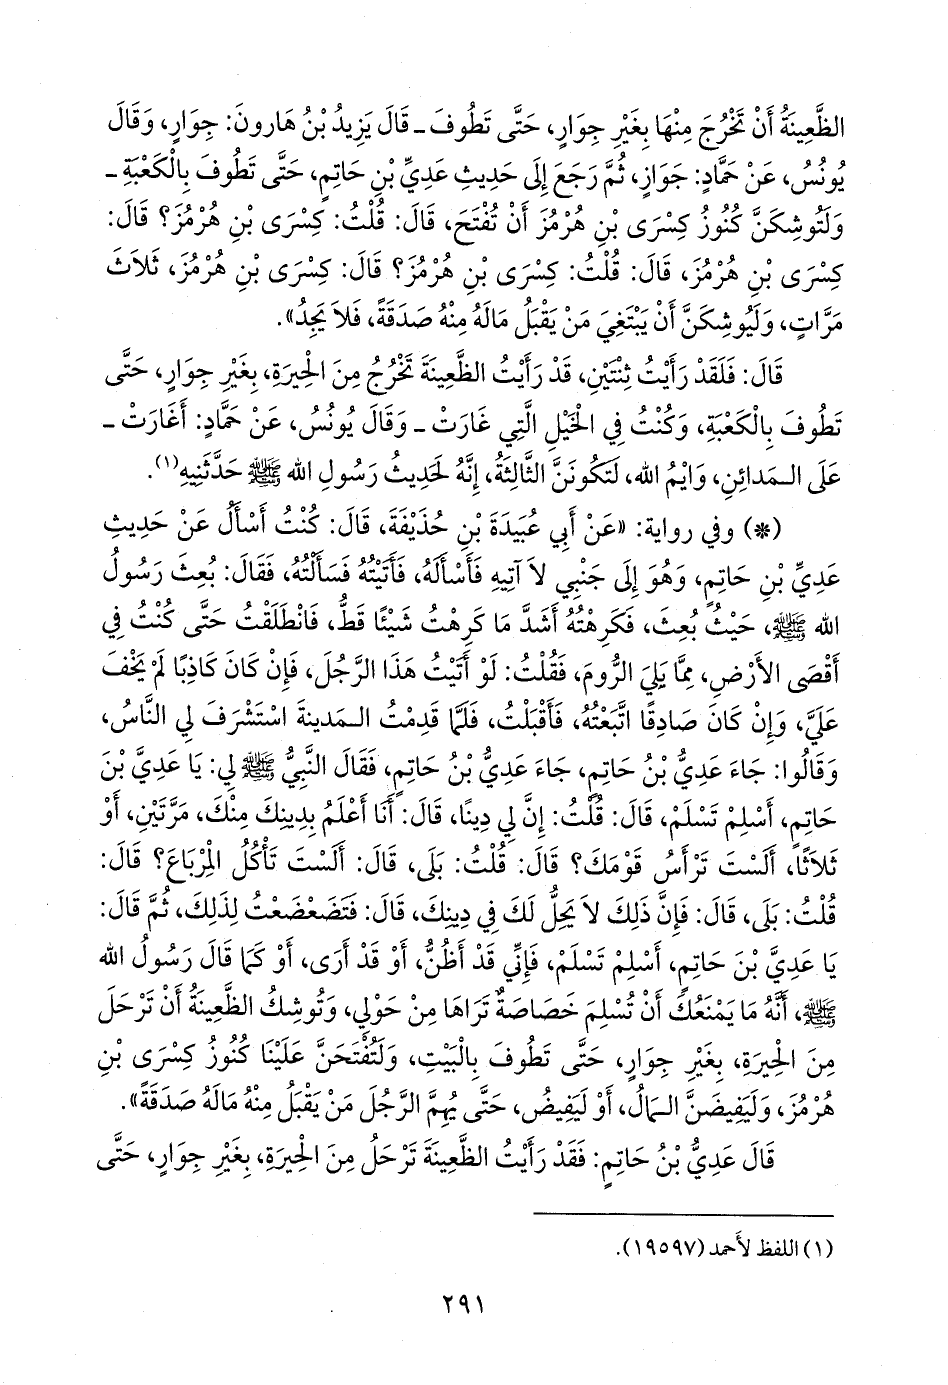 الظَّعِينَةُ أَنْ تَخْرُجَ مِنْهَا بِغَيْرِ جِوَارٍ، حَتَّى تَطُوفَ ـ قَالَ يَزِيدُ بْنُ هَارونَ: جِوَارٍ، وَقَالَ
يُونُسُ، عَنْ حَمَّادٍ: جَوَازٍ، ثُمَّ رَجَعَ إِلَى حَدِيثِ عَدِيِّ بْنِ حَاتِمٍ، حَتَّى تَطُوفَ بِالْكَعْبَةِ ـ
وَلَتُوشِكَنَّ كُنُوزُ كِسْرَى بْنِ هُرْمُزَ أَنْ تُفْتَحَ، قَالَ: قُلْتُ: كِسْرَى بْنِ هُرْمُزَ؟ قَالَ:
كِسْرَى بْنِ هُرْمُزَ، قَالَ: قُلْتُ: كِسْرَى بْنِ هُرْمُزَ؟ قَالَ: كِسْرَى بْنِ هُرْمُزَ، ثَلاَثَ
مَرَّاتٍ، وَلَيُوشِكَنَّ أَنْ يَبْتَغِيَ مَنْ يَقْبَلُ مَالَهُ مِنْهُ صَدَقَةً، فَلاَ يَجِدُ».
قَالَ: فَلَقَدْ رَأَيْتُ ثِنْتَيْنِ، قَدْ رَأَيْتُ الظَّعِينَةَ تَخْرُجُ مِنَ الْحِيرَةِ، بِغَيْرِ جِوَارٍ، حَتَّى
تَطُوفَ بِالْكَعْبَةِ، وَكُنْتُ فِي الْخَيْلِ الَّتِي غَارَتْ ـ وَقَالَ يُونُسُ، عَنْ حَمَّادٍ: أَغَارَتْ ـ
عَلَى الـمَدائِنِ، وَايْمُ الله، لَتَكُونَنَّ الثَّالِثَةُ، إِنَّهُ لَحَدِيثُ رَسُولِ الله ﷺ حَدَّثَنِيهِ(١).
(*) وفي رواية: «عَنْ أَبِي عُبَيْدَةَ بْنِ حُذَيْفَةَ، قَالَ: كُنْتُ أَسْأَلُ عَنْ حَدِيثِ
عَدِيِّ بْنِ حَاتِمٍ، وَهُوَ إِلَى جَنْبِي لاَ آتِيهِ فَأَسْأَلَهُ، فَأَتَيْتُهُ فَسَأَلْتُهُ، فَقَالَ: بُعِثَ رَسُولُ
الله ﷺ، حَيْثُ بُعِثَ، فَكَرِهْتُهُ أَشَدَّ مَا كَرِهْتُ شَيْئًا قَطُّ، فَانْطَلَقْتُ حَتَّى كُنْتُ فِي
أَقْصَى الأَرْضِ، مِمَّا يَلِيَ الرُّومَ، فَقُلْتُ: لَوْ أَتَيْتُ هَذَا الرَّجُلَ، فَإِنْ كَانَ كَاذِبًا لَمْ يَخْفَ
عَلَيَّ، وَإِنْ كَانَ صَادِقًا اتَّبَعْتُهُ، فَأَقْبَلْتُ، فَلَمَّا قَدِمْتُ الـمَدينةَ اسْتَشْرَفَ لِي النَّاسُ،
وَقَالُوا: جَاءَ عَدِيُّ بْنُ حَاتِمٍ، جَاءَ عَدِيُّ بْنُ حَاتِمٍ، فَقَالَ النَّبِيُّ ﷺ لِي: يَا عَدِيَّ بْنَ
حَاتِمٍ، أَسْلِمْ تَسْلَمْ، قَالَ: قُلْتُ: إِنَّ لِي دِينًا، قَالَ: أَنَا أَعْلَمُ بِدِينِكَ مِنْكَ، مَرَّتَيْنِ، أَوْ
ثَلاَثًا، أَلَسْتَ تَرْأَسُ قَوْمَكَ؟ قَالَ: قُلْتُ: بَلَى، قَالَ: أَلَسْتَ تَأْكُلُ الْمِرْبَاعَ؟ قَالَ:
قُلْتُ: بَلَى، قَالَ: فَإِنَّ ذَلِكَ لاَ يَحِلُّ لَكَ فِي دِينِكَ، قَالَ: فَتَضَعْضَعْتُ لِذَلِكَ، ثُمَّ قَالَ:
يَا عَدِيَّ بْنَ حَاتِمٍ، أَسْلِمْ تَسْلَمْ، فَإِنِّي قَدْ أَظُنُّ، أَوْ قَدْ أَرَى، أَوْ كَمَا قَالَ رَسُولُ الله
ﷺ، أَنَّهُ مَا يَمْنَعُكَ أَنْ تُسْلِمَ خَصَاصَةٌ تَرَاهَا مِنْ حَوْلِي، وَتُوشِكُ الظَّعِينَةُ أَنْ تَرْحَلَ
مِنَ الْحِيرَةِ، بِغَيْرِ جِوَارٍ، حَتَّى تَطُوفَ بِالْبَيْتِ، وَلَتُفْتَحَنَّ عَلَيْنَا كُنُوزُ كِسْرَى بْنِ
هُرْمُزَ، وَلَيَفِيضَنَّ الـمَالُ، أَوْ لَيَفِيضُ، حَتَّى يُهِمَّ الرَّجُلَ مَنْ يَقْبَلُ مِنْهُ مَالَهُ صَدَقَةً».
قَالَ عَدِيُّ بْنُ حَاتِمٍ: فَقَدْ رَأَيْتُ الظَّعِينَةَ تَرْحَلُ مِنَ الْحِيرَةِ، بِغَيْرِ جِوَارٍ، حَتَّى
(١) اللفظ لأَحمد (١٩٥٩٧).
٢٩١